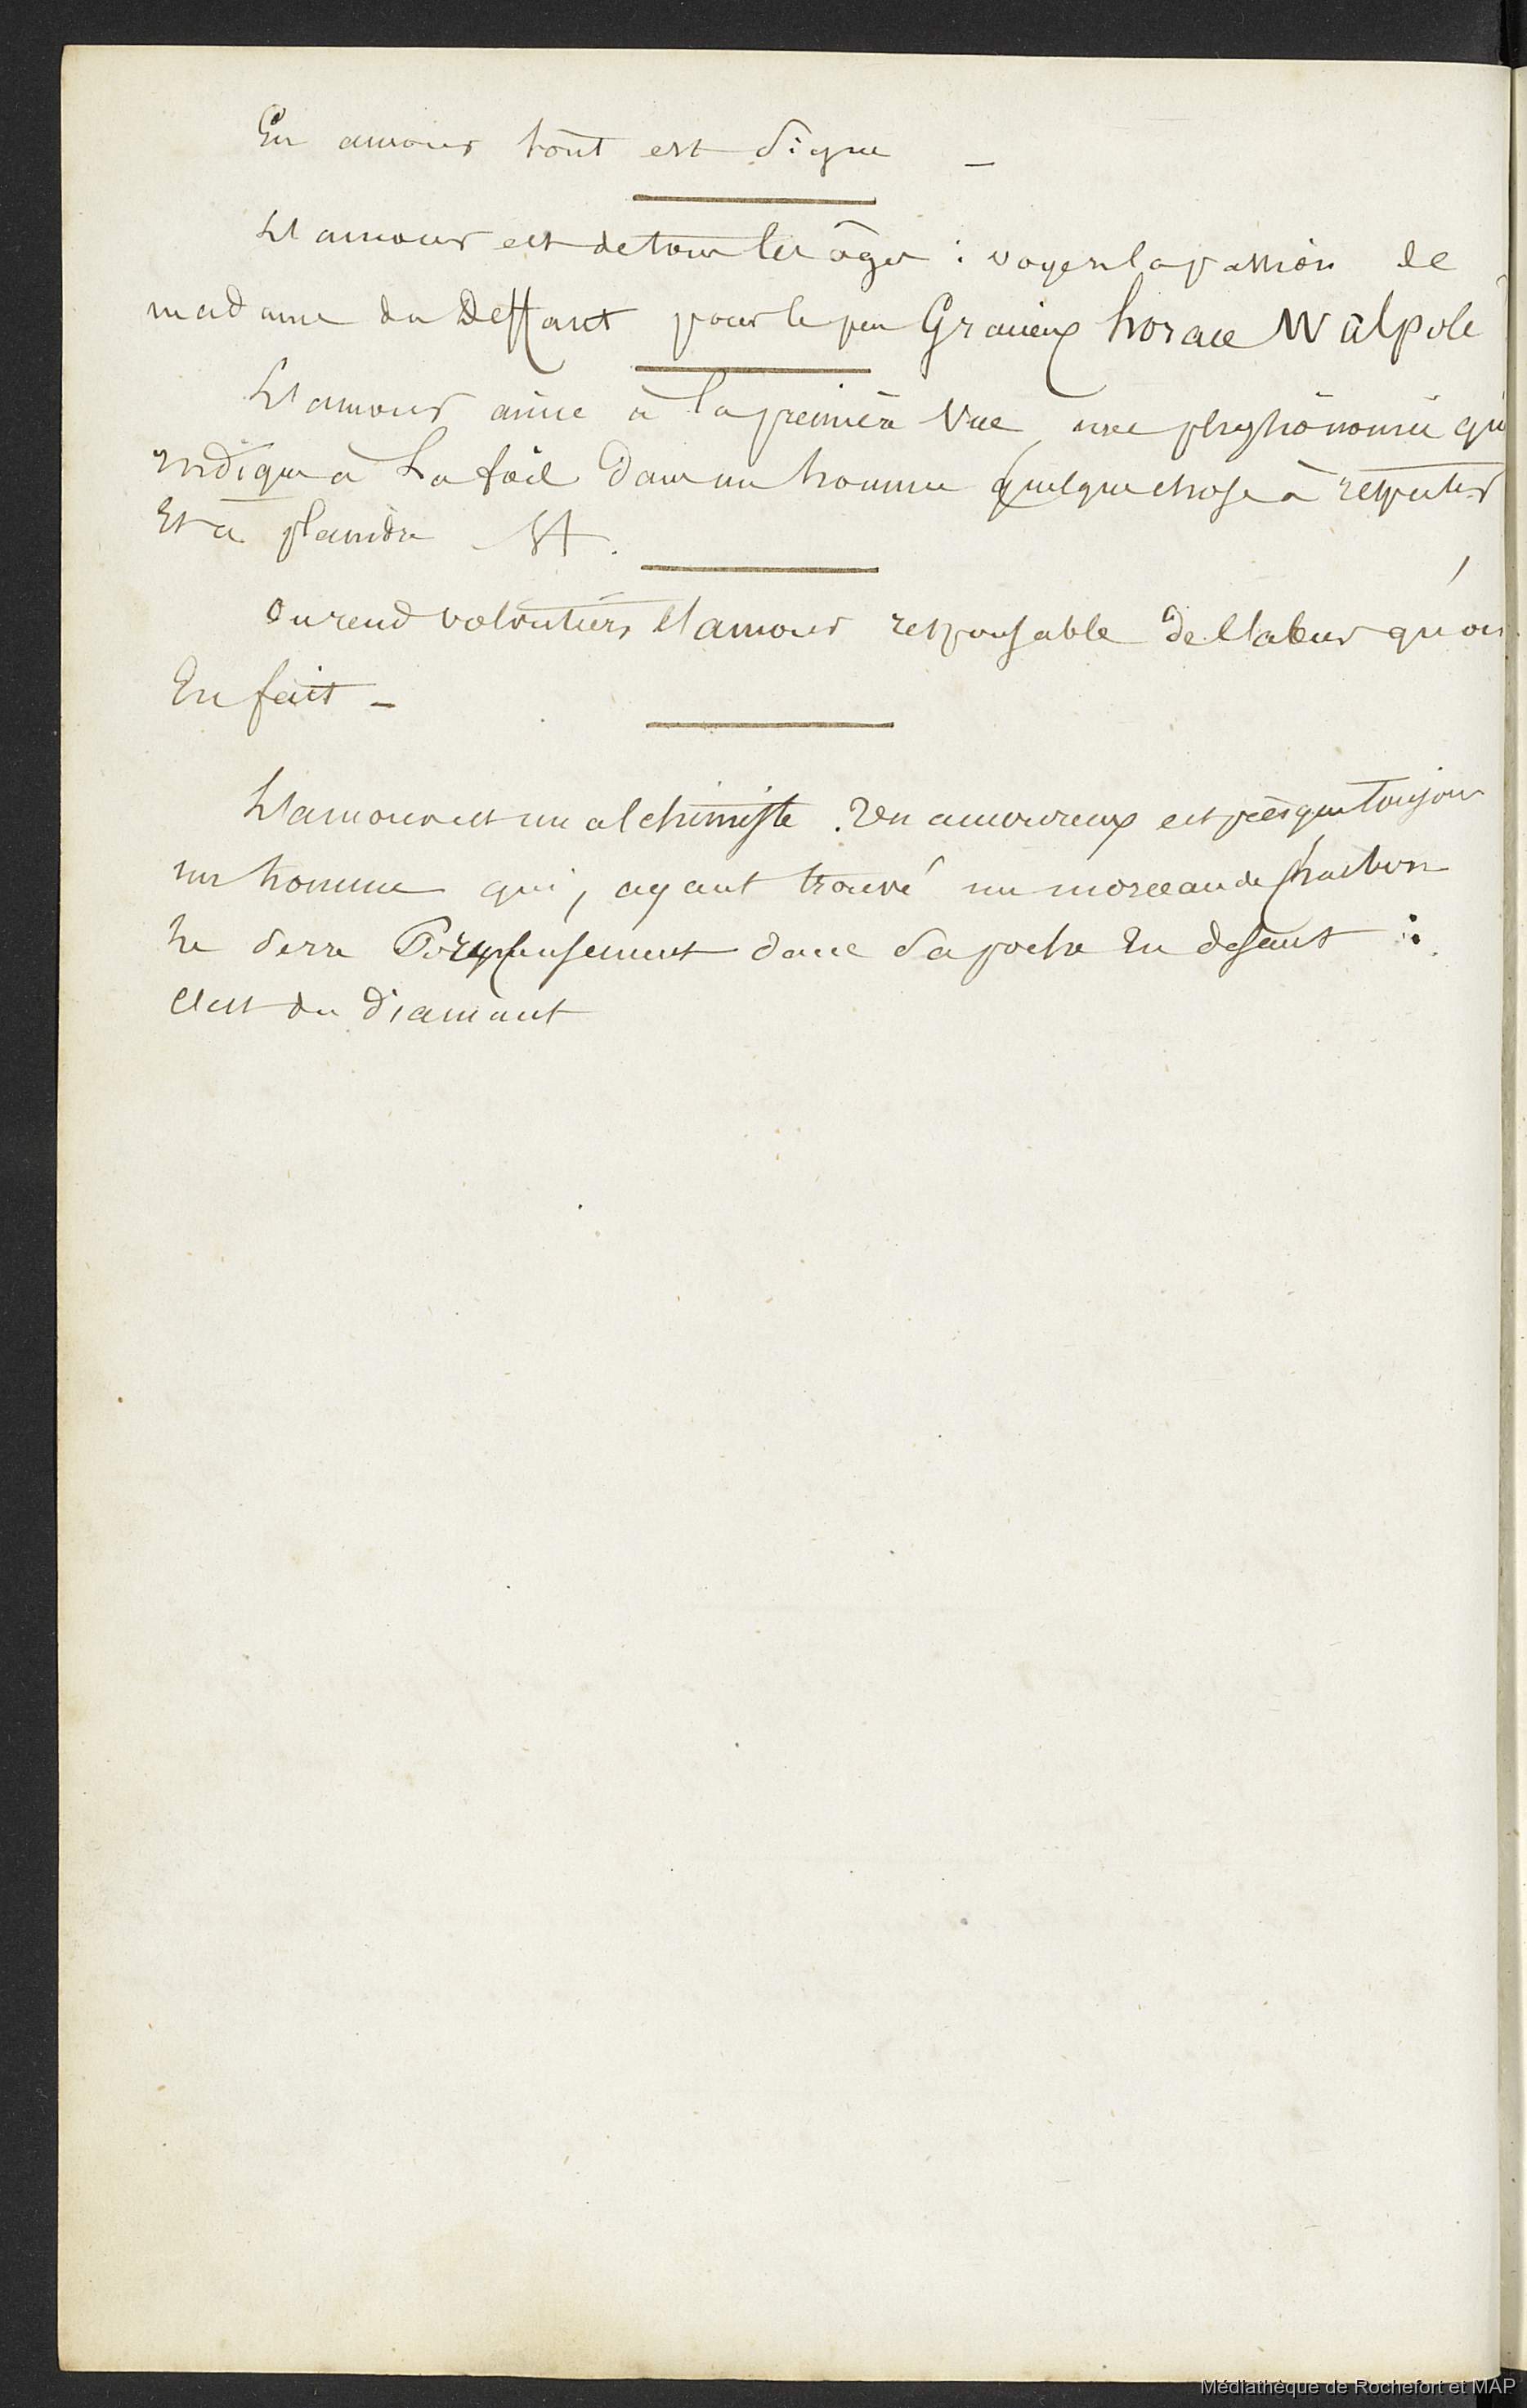 En amour tout est signe _
L'amour est de tous les âges : voyez la passion de
madame du Deffant pour le peu Gracieux horace Walpole
L'amour aime à la première vue une physionomie qui
indique à la fois dans un homme quelque chose à respecter
Et à plaindre St.
On rend volontiers l'amour responsable de l'abus qu'on
En fait _
L'amour est un alchimiste. Un amoureux est presque toujours
un homme qui, ayant trouvé un morceau de charbon
le serre Précieusement dans sa poche En disant :
c'est du diamant
Médiathèque de Rochefort et MAP